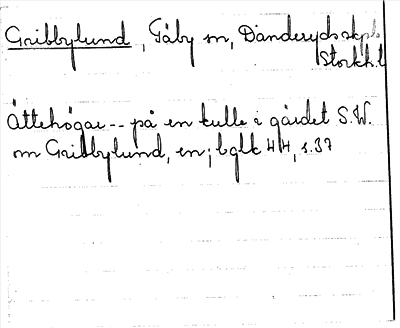 Gribbylund, Täby sn, Danderyds skpl
Stockh. l
Ättehögar -- på en kulle i gärdet S.W.
om Gribbylund, en; bglk H/H, s.37